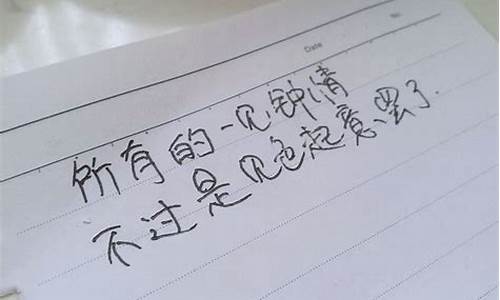 Date
No.
所有的一见钟情
不过是见色起意罢了.